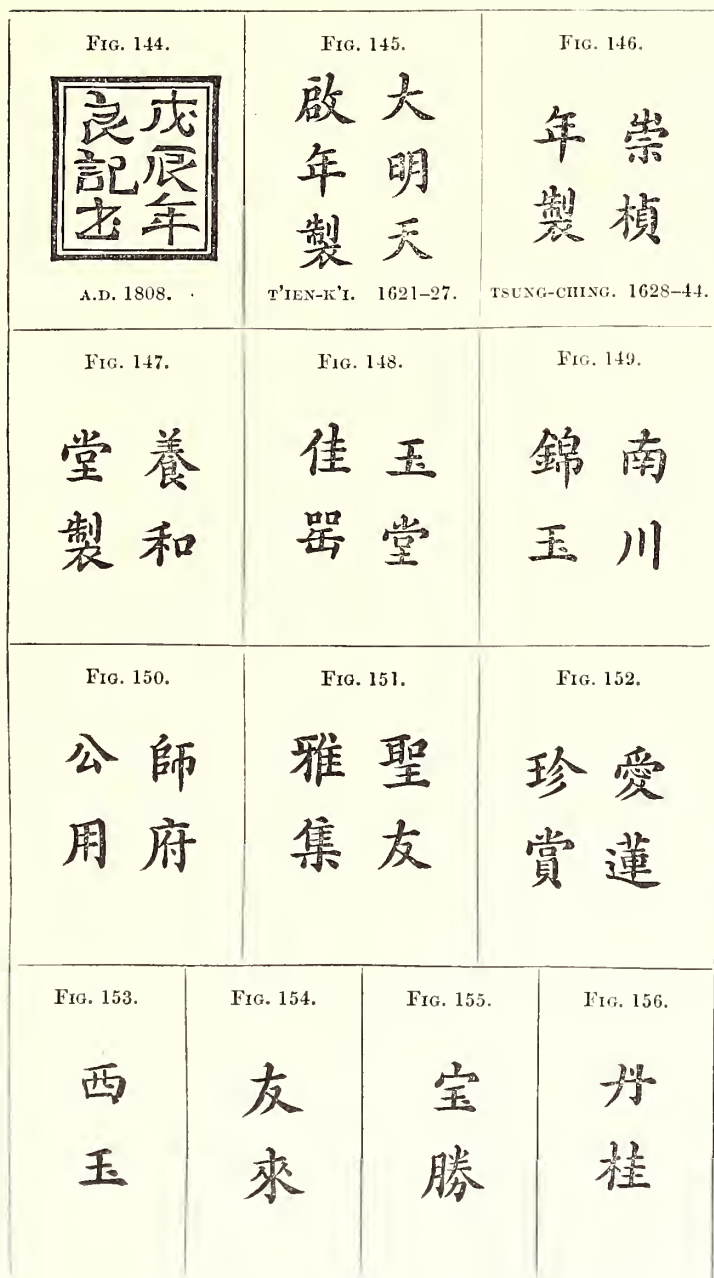 FIG. 144.
戊辰年
良記
A.D. 1808.
FIG. 145.
大明天
啟年製
T'IEN-K'I. 1621–27.
FIG. 146.
崇楨
年製
TSUNG-CHING. 1628–44.
FIG. 147.
養和
堂製
FIG. 148.
玉堂
佳噐
FIG. 149.
南川
錦玉
FIG. 150.
師府
公用
FIG. 151.
聖友
雅集
FIG. 152.
愛蓮
珍賞
FIG. 153.
西玉
FIG. 154.
友來
FIG. 155.
宝勝
FIG. 156.
丹桂